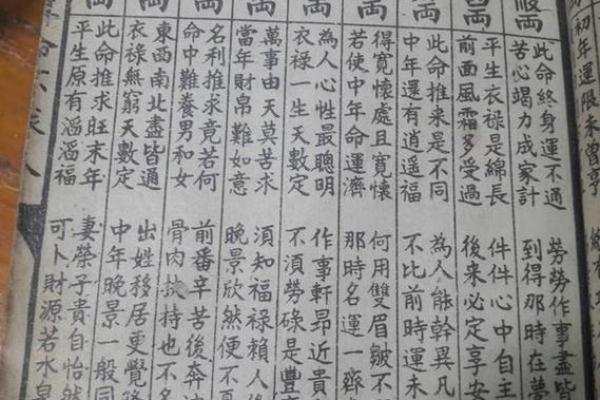 初年運限未曾亨
兩
此命終身運不通 勞勞作事盡皆
苦心竭力成家計 到得那時在夢
兩
平生衣祿是綿長 件件心中自主
前面風霜多受過 後来必定享安
兩
此命推来是不同 為人能幹異凡
中年還有逍遥福 不比前時運未
兩
得寬懷處且寬懷 何用雙眉皺不
若使中年命運濟 那時名運一齊
兩
為人心性最聰明 作事軒昂近貴
衣祿一生天數定 不須勞碌是豐
兩
萬事由天莫苦求 須知福祿賴人
當年財帛難如意 晚景欣然便不
兩
名利推求竟若何 前番辛苦後奔
命中難養男和女 骨肉扶持也不
兩
東西南北盡皆通 出姓移居更覺
衣祿無窮天數定 中年晚景一般同
兩
此命推求旺末年 妻榮子貴自怡然
平生原有滔滔福 可卜財源若水